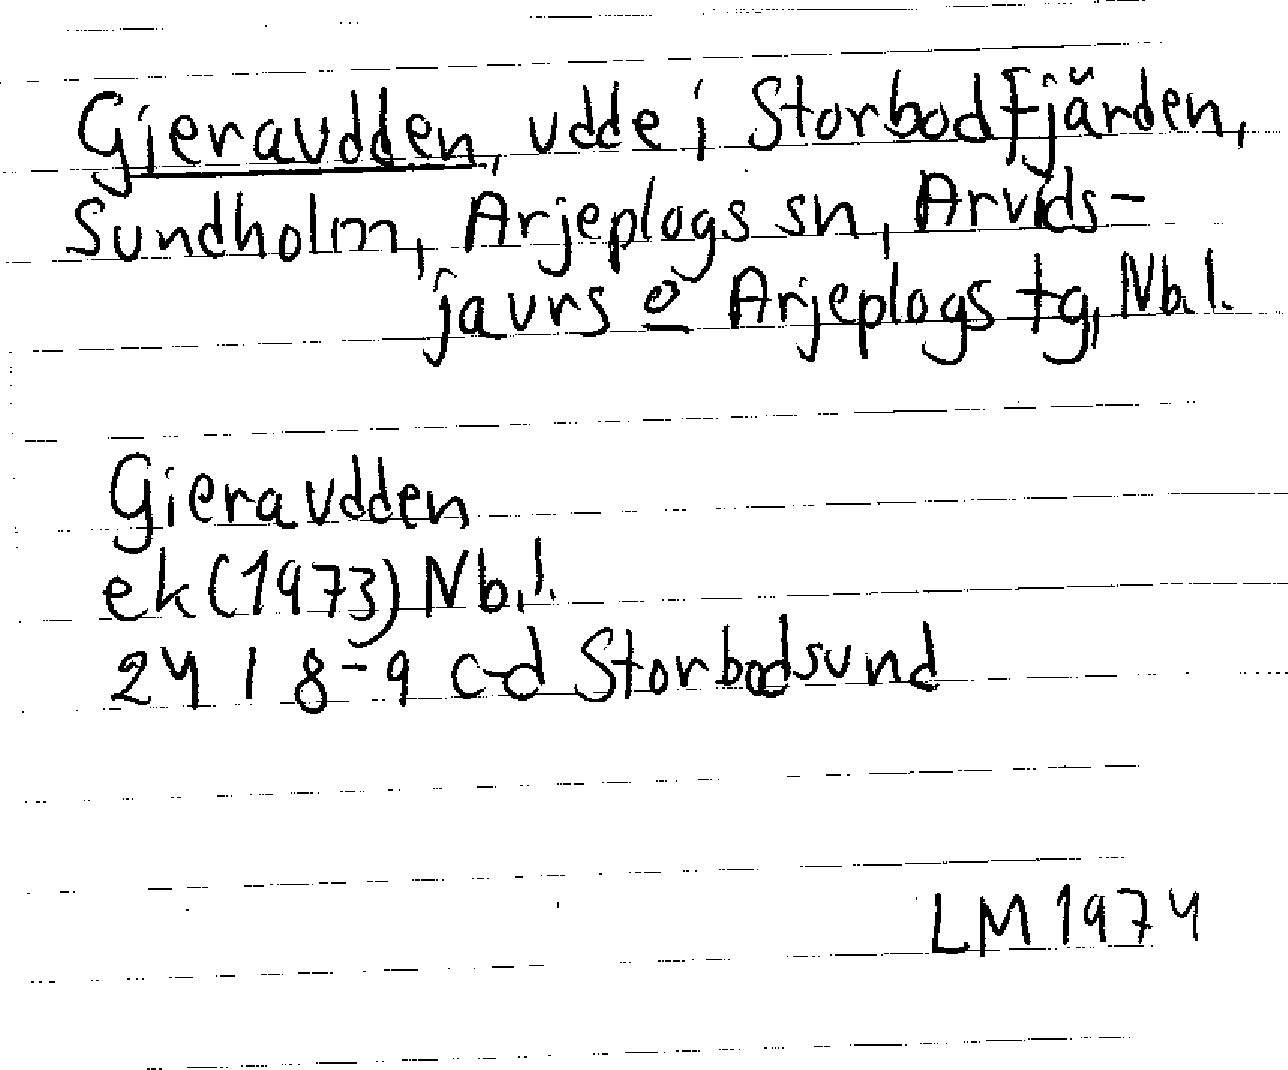 Gieraudden, udde i Storbodfjärden,
Sundholm, Arjeplogs sn, Arvids-
jaurs o Arjeplogs tg, Nb.l.
Gieraudden
ek (1973) Nb.l.
24 I 8-9 c-d Storbodsund
LM 1974